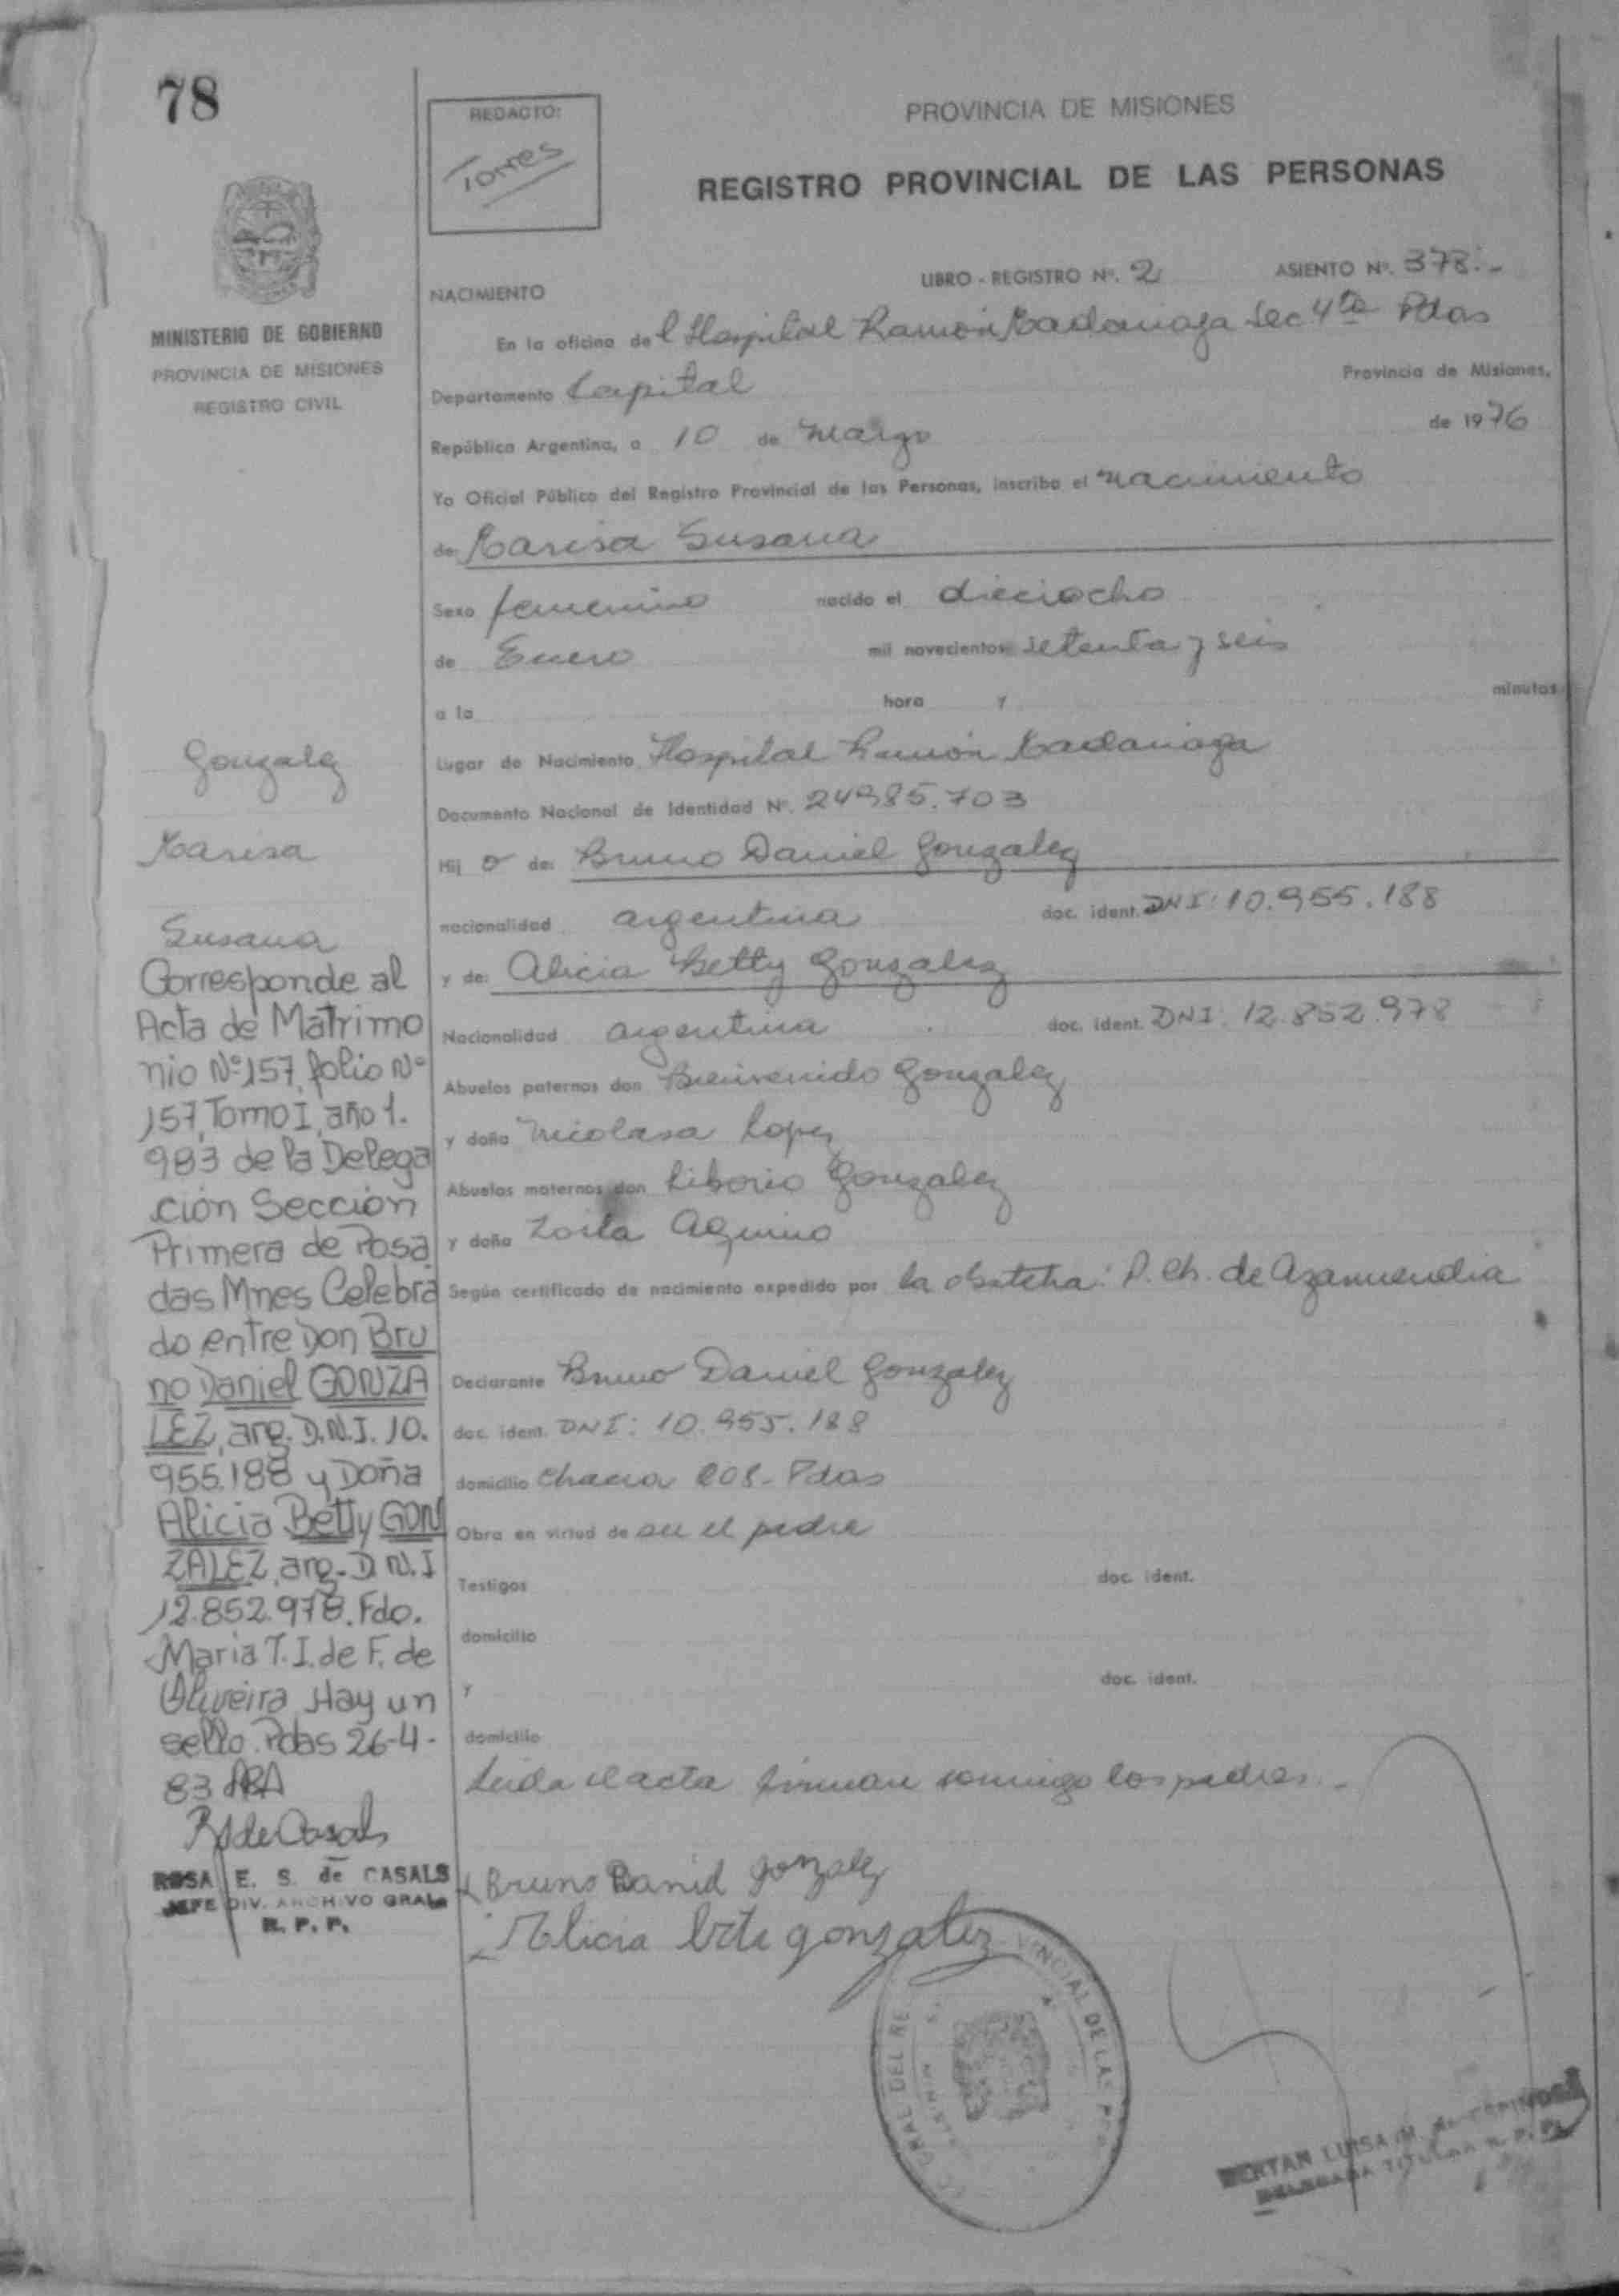 78
REDACTO:
Torres
PROVINCIA DE MISIONES
REGISTRO PROVINCIAL DE LAS PERSONAS
MINISTERIO DE GOBIERNO
PROVINCIA DE MISIONES
REGISTRO CIVIL
LIBRO - REGISTRO Nº. 2 ASIENTO Nº. 378.-
NACIMIENTO
En la oficina del Hospital Ramón Madariaga Sec 4ta Pdas
Departamento Capital Provincia de Misiones,
República Argentina, a 10 de Marzo de 1976
Yo Oficial Público del Registro Provincial de las Personas, inscribo el nacimiento
de: Marisa Susana
Sexo femenino nacido el dieciocho
de Enero mil novecientos setenta y seis
a la hora y minutos
Lugar de Nacimiento Hospital Ramón Madariaga
Documento Nacional de Identidad Nº. 24985.703
Hij o de: Bruno Daniel Gonzalez
nacionalidad argentina doc. ident. DNI: 10.955.188
y de: Alicia Betty Gonzalez
Nacionalidad argentina doc. ident. DNI: 12.852.978
Abuelos paternos don Bienvenido Gonzalez
y doña Nicolasa Lopez
Abuelos maternos don Liborio Gonzalez
y doña Zoila Aquino
Según certificado de nacimiento expedido por la obstetra: P. Ch. de Azarmendia
Declarante Bruno Daniel Gonzalez
doc. ident. DNI: 10.955.188
domicilio Chacra 208- Pdas
Obra en virtud de ser el padre
Testigos doc. ident.
domicilio
y doc. ident.
domicilio
Leida el acta firman conmigo los padres.-
Bruno Daniel Gonzalez
Alicia Gonzalez
Gonzalez
Marisa
Susana
Corresponde al
Acta de Matrimo
nio Nº157, folio Nº
157, Tomo I, año 1.
983 de la Delega
ción Sección
Primera de Posa
das Mnes Celebra
do entre Don Bru
no Daniel GONZA
LEZ, arg. D.N.I. 10.
955.188 y Doña
Alicia Betty GON
ZALEZ, arg. D.N.I
12.852.978. Fdo.
Maria T. I. de F. de
Oliveira Hay un
sello. Pdas 26-4-
83
R S de Casals
ROSA E. S. de CASALS
JEFE DIV. ARCHIVO GRAL
R. P. P.
GRAL DEL RE VINCIAL DE LAS
BERTAN LUISA M. ESPINOSA
DELEGADA TITULAR R. P. P.